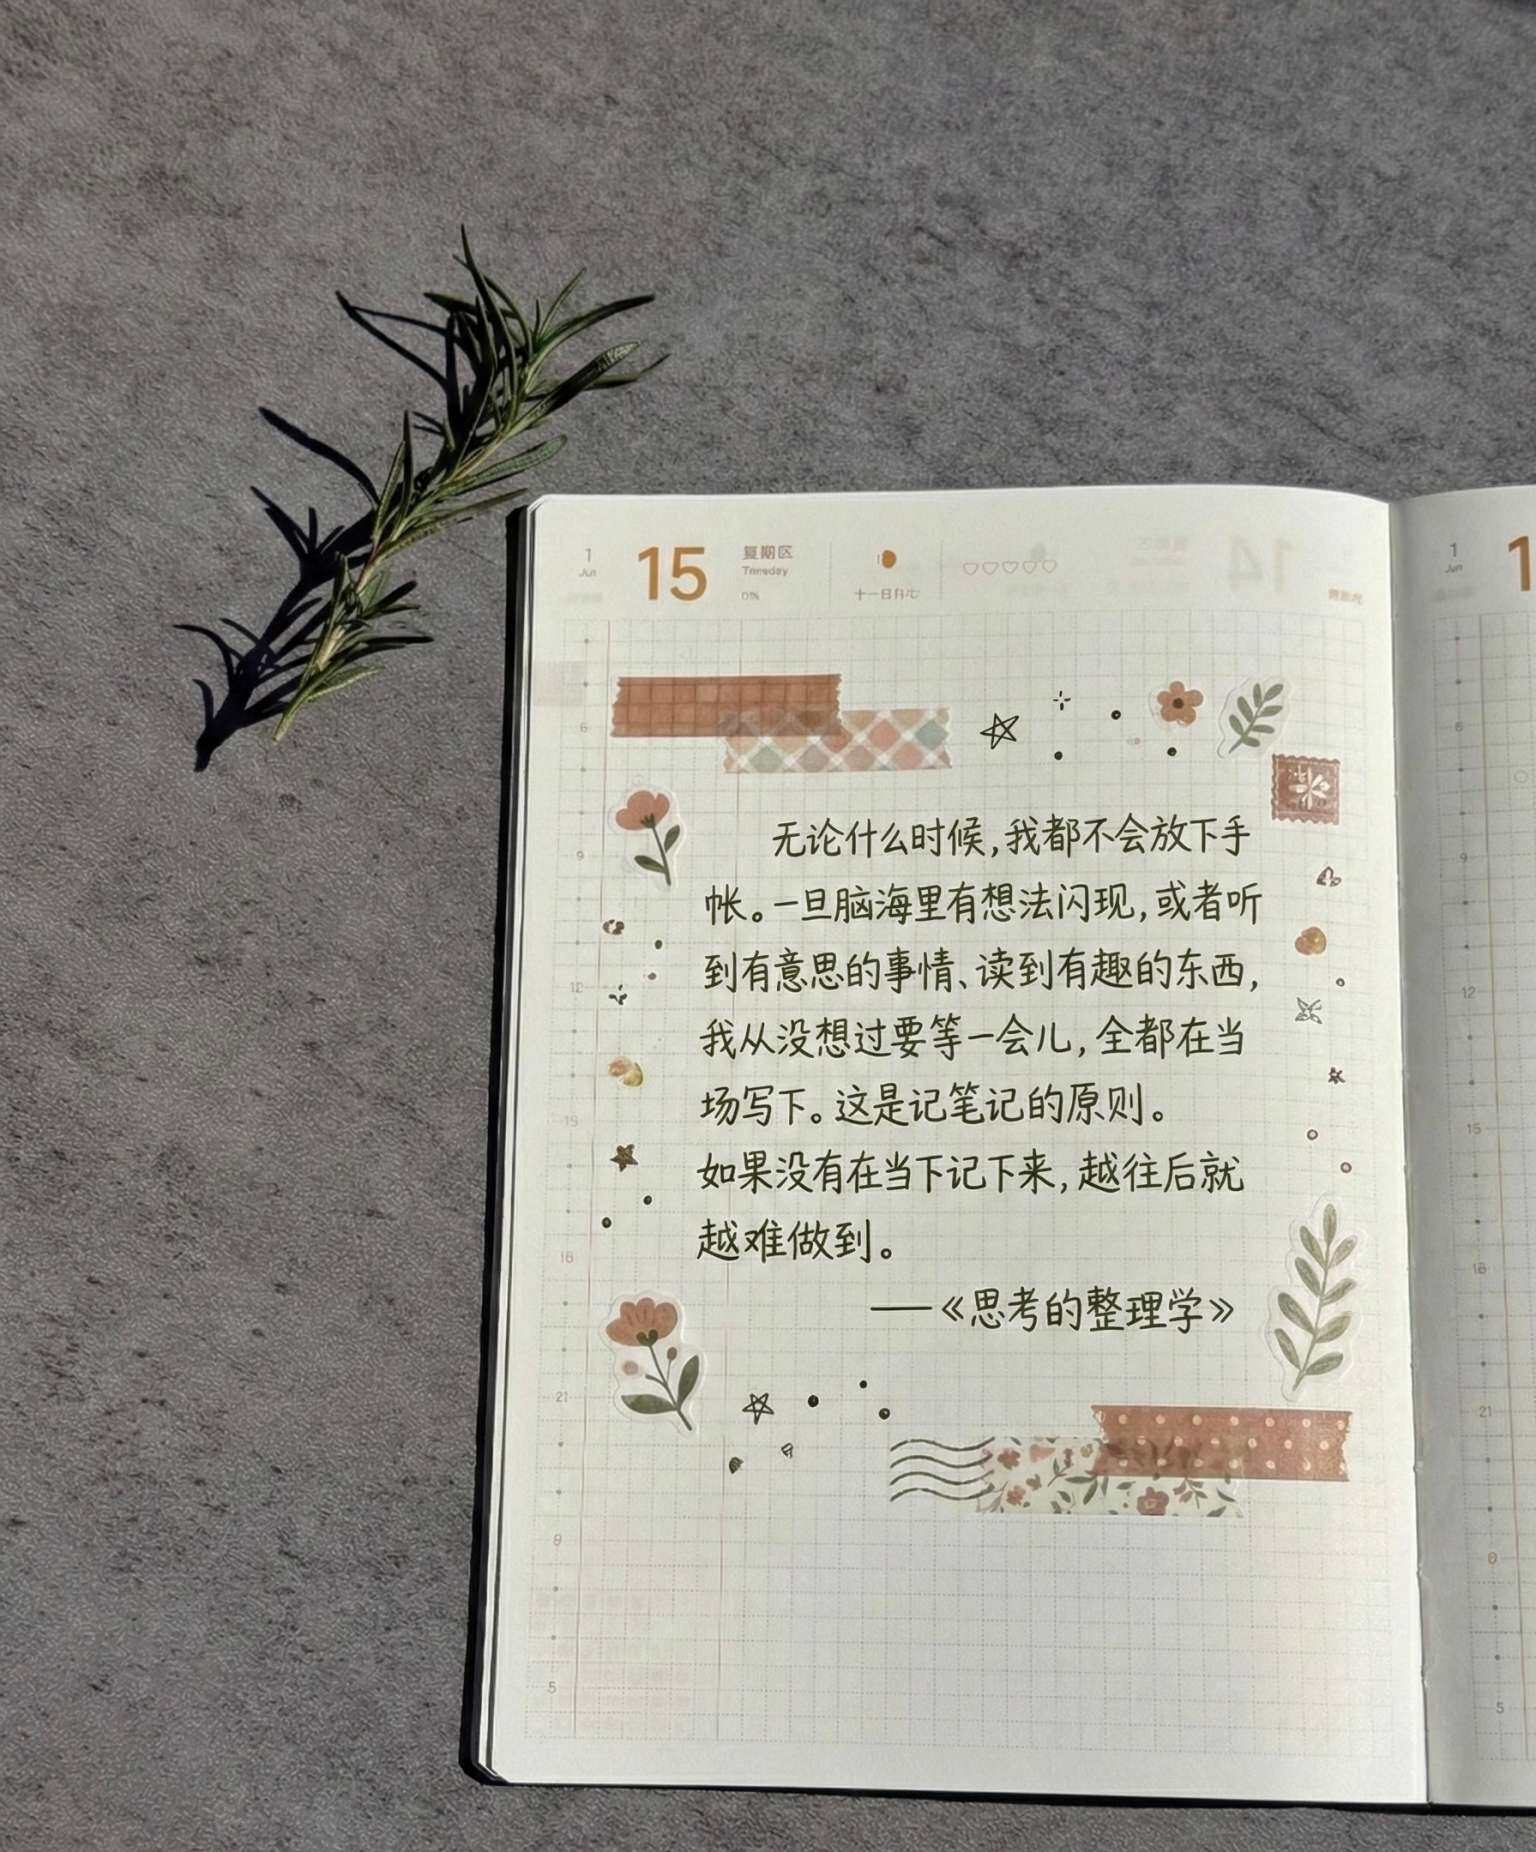 1
Jun
15
复期区
0%
无论什么时候,我都不会放下手
帐。一旦脑海里有想法闪现,或者听
到有意思的事情、读到有趣的东西,
我从没想过要等一会儿,全都在当
场写下。这是记笔记的原则。
如果没有在当下记下来,越往后就
越难做到。
——《思考的整理学》
6
9
12
15
18
21
0
5
1
Jun
1
9
12
15
18
21
0
5